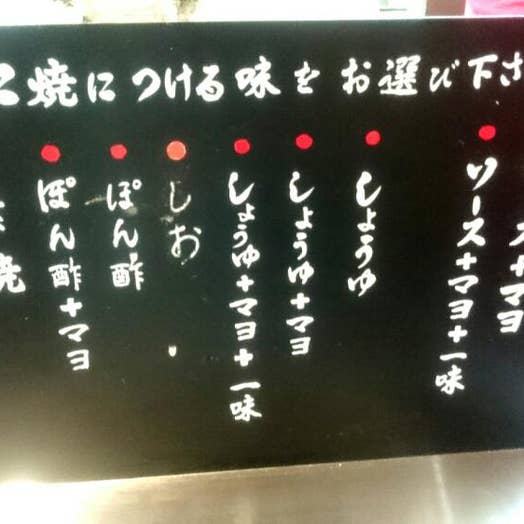 コ焼につける味をお選び下さ
ス+マヨ
ソース+マヨ+一味
しょうゆ
しょうゆ+マヨ
しょうゆ+マヨ+一味
しお
ぽん酢
ぽん酢+マヨ
焼